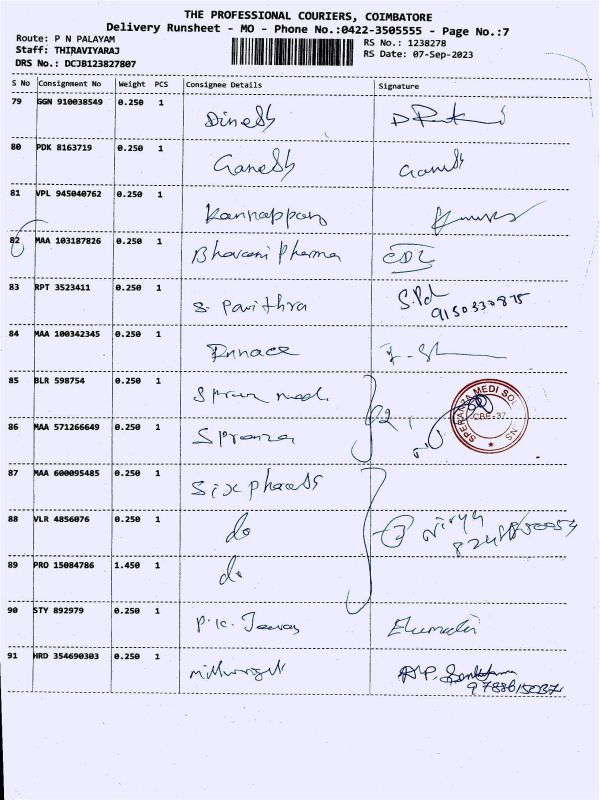 THE PROFESSIONAL COURIERS, COIMBATORE
Delivery Runsheet - MO - Phone No.:0422-3505555 - Page No.:7
Route: P N PALAYAM
Staff: THIRAVIYARAJ
DRS No.: DCJB123827807
RS No.: 1238278
RS Date: 07-Sep-2023
S No Consignment No Weight PCS Consignee Details Signature
79 GGN 910038549 0.250 1 Dinesh
80 PDK 8163719 0.250 1 Ganesh Ganesh
81 VPL 945040762 0.250 1 Kannappan
82 MAA 103187826 0.250 1 Bhavani Pharma
83 RPT 3523411 0.250 1 S. Pavithra S.Pd
9150330875
84 MAA 100342345 0.250 1
85 BLR 598754 0.250 1
SPERANZA MEDI SOL
CBE-37
86 MAA 571266649 0.250 1
87 MAA 600095485 0.250 1
88 VLR 4856076 0.250 1 do
89 PRO 15084786 1.450 1 do
90 STY 892979 0.250 1 P.K.
91 HRD 354690303 0.250 1